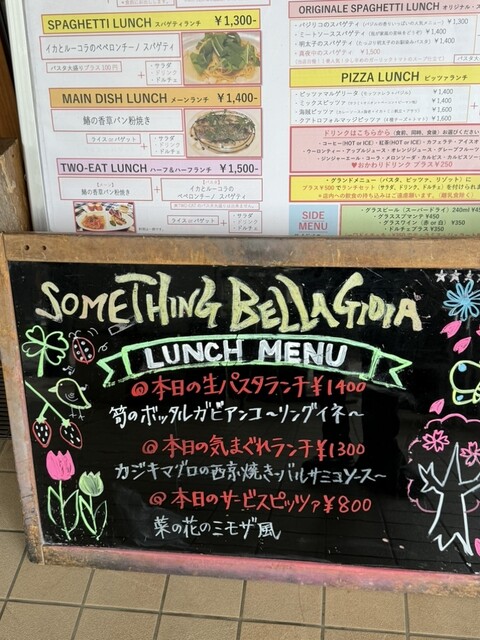 SPAGHETTI LUNCH スパゲティランチ ¥1,300-
イカとルーコラのペペロンチーノ スパゲティ
パスタ大盛りプラス100円
・サラダ
・ドリンク
・ドルチェ
MAIN DISH LUNCH メーンランチ ¥1,400-
鰆の香草パン粉焼き
ライス or バゲット
・サラダ
・ドリンク
・ドルチェ
TWO-EAT LUNCH ハーフ&ハーフランチ ¥1,500-
鰆の香草パン粉焼き
イカとルーコラの
ペペロンチーノ スパゲティ
ライス or バゲット
・サラダ
・ドリンク
・ドルチェ
ORIGINALE SPAGHETTI LUNCH オリジナル・ス
・バジリコのスパゲティ ¥1,300
・ミートソーススパゲティ ¥1,400
・明太子のスパゲティ ¥1,400
・真夜中のスパゲティ ¥1,500
PIZZA LUNCH ピッツァランチ
・ピッツァマルゲリータ ¥1,400
・ミックスピッツァ ¥1,600
・海賊ピッツァ ¥1,600
・クアトロフォルマッジピッツァ
ドリンクはこちらから (食前、同時、食後) お選びください
・コーヒー(HOT or ICE)・紅茶(HOT or ICE)・カフェラテ・アイスオ
・ウーロンティー・アップルジュース・オレンジジュース・グレープフルーツ
・ジンジャーエール・コーラ・メロンソーダ・カルピス・カルピスソーダ
♥おかわりドリンク プラス ¥250
・グランドメニュー (パスタ、ピッツァ、リゾット) に
プラス¥500でランチセット (サラダ、ドリンク、ドルチェ) を付けられま
SIDE
MENU
・グラスビール (スーパードライ) 240ml ¥45
・グラススプマンテ ¥450
・グラスワイン (赤 or 白) ¥350
・ドルチェプラス ¥350
SOMETHING BELLAGIOIA
LUNCH MENU
@本日の生パスタランチ¥1400
筍のボッタルガビアンコ〜リングイネ〜
@本日の気まぐれランチ¥1300
カジキマグロの西京焼き〜バルサミコソース〜
@本日のサービスピッツァ¥800
菜の花のミモザ風